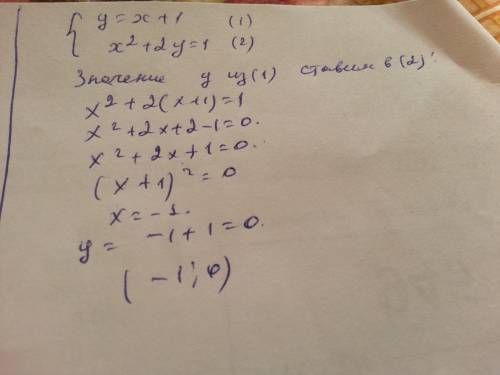 { y = x + 1 (1)
x² + 2y = 1 (2)
Значение y из (1) ставим в (2):
x² + 2(x+1) = 1
x² + 2x + 2 - 1 = 0.
x² + 2x + 1 = 0.
(x + 1)² = 0
x = -1.
y = -1 + 1 = 0.
(-1; 0)